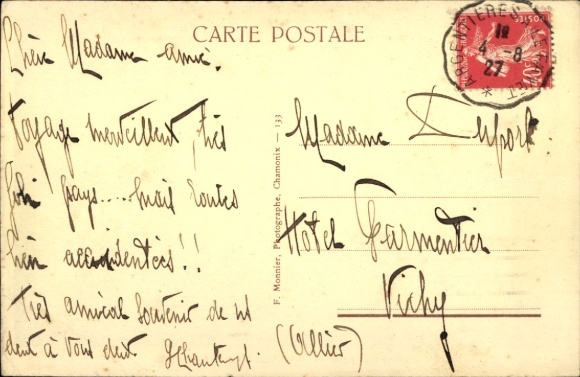 CARTE POSTALE
Chère Madame amie.
Voyage merveilleux, très
joli pays.... mais routes
bien accidentées!!
Très amical souvenir de ns
deux à vous deux
F. Monnier, Photographe, Chamonix — 133
Madame
Hôtel Parmentier
Vichy
(Allier)
POSTES
ARGENTIÈRES
4 - 8
27